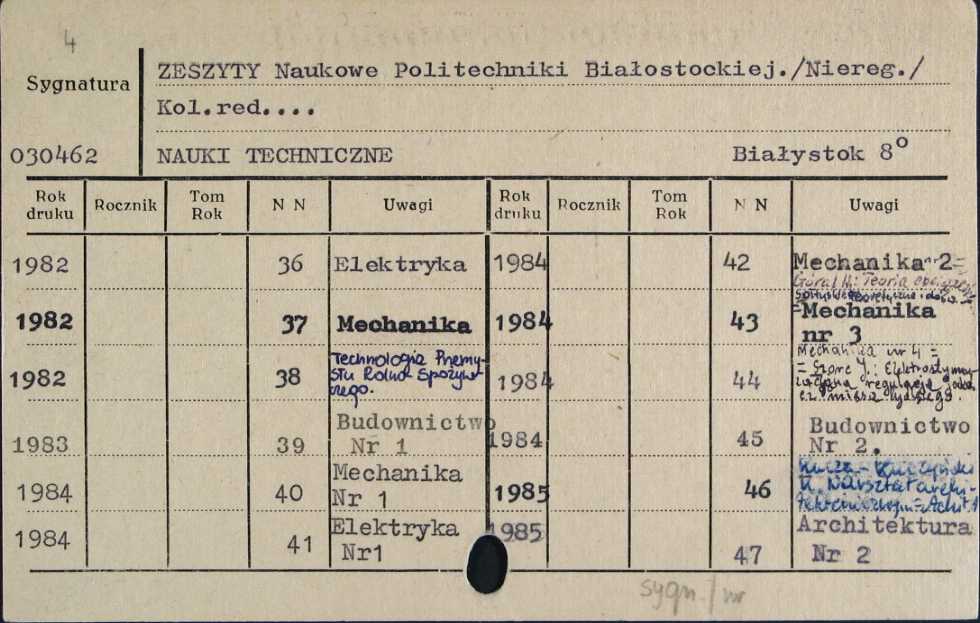 4
Sygnatura
ZESZYTY Naukowe Politechniki Białostockiej./Niereg./
Kol.red....
030462 NAUKI TECHNICZNE Białystok 8°
Rok druku Rocznik Tom Rok N N Uwagi Rok druku Rocznik Tom Rok N N Uwagi
1982 36 Elektryka
1982 37 Mechanika
1982 38 Technologia Przemy-
słu Rolno-Spożyw-
czego.
1983 39 Budownictwo
Nr 1
1984 40 Mechanika
Nr 1
1984 41 Elektryka
Nr1
1984 42 Mechanika nr 2=
Góral M.: Teoria
1984 43 =Mechanika
nr 3
1984 44 Mechanika nr 4 =
= Szorc J.: Elektrostymu-
1984 45 Budownictwo
Nr 2.
1985 46 Kucza-Kuczyński
K. Warsztat archi-
1985 47 Architektura
Nr 2
sygn./nr